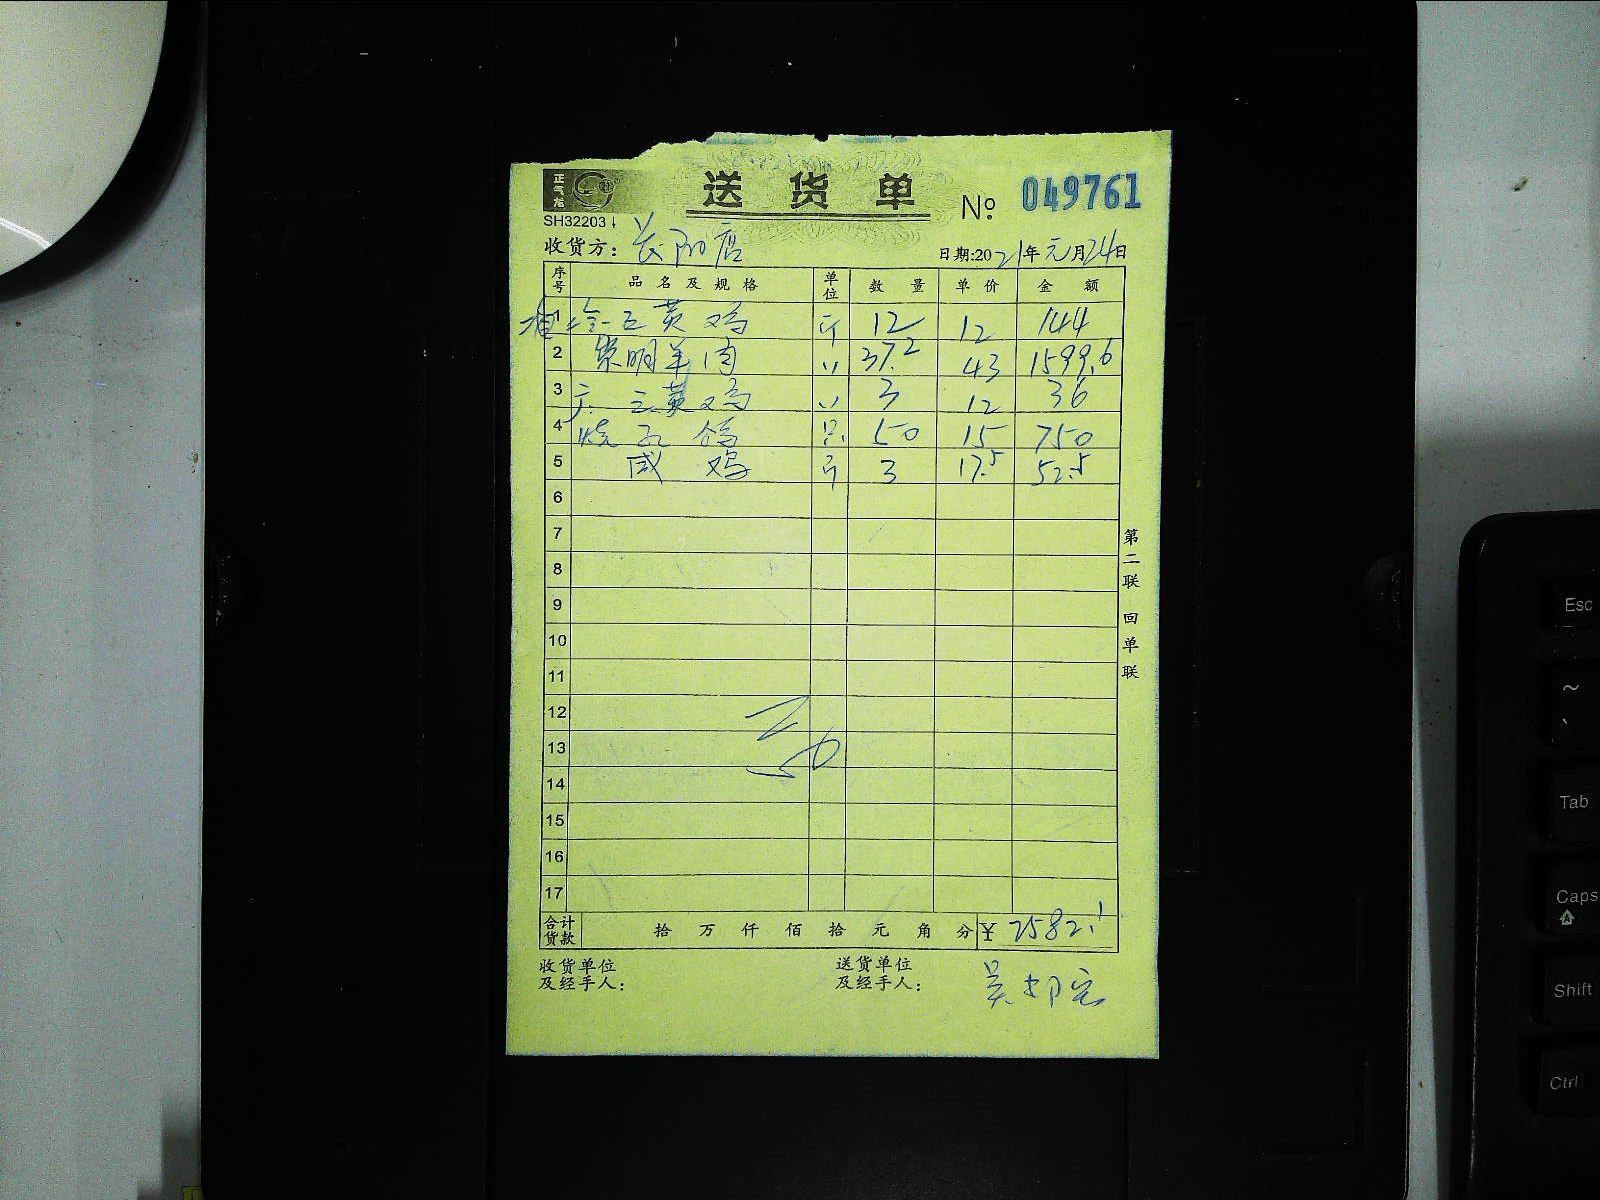 正气龙
送货单 № 049761
SH32203
收货方：长阳店 日期:2021年元月24日
序号 品名及规格 单位 数量 单价 金额
1 三黄鸡 斤 12 12 144
2 崇明羊肉 〃 37.2 43 1599.6
3 三黄鸡 〃 3 12 36
4 烧乳鸽 只 50 15 750
5 咸鸡 斤 3 17.5 52.5
6
7
8
9
10
11
12
13
14
15
16
17
第二联 回单联
合计货款 拾万仟佰拾元角分 ¥ 2582.1
收货单位及经手人： 送货单位及经手人：
Esc
~
`
Tab
Caps
Shift
Ctrl